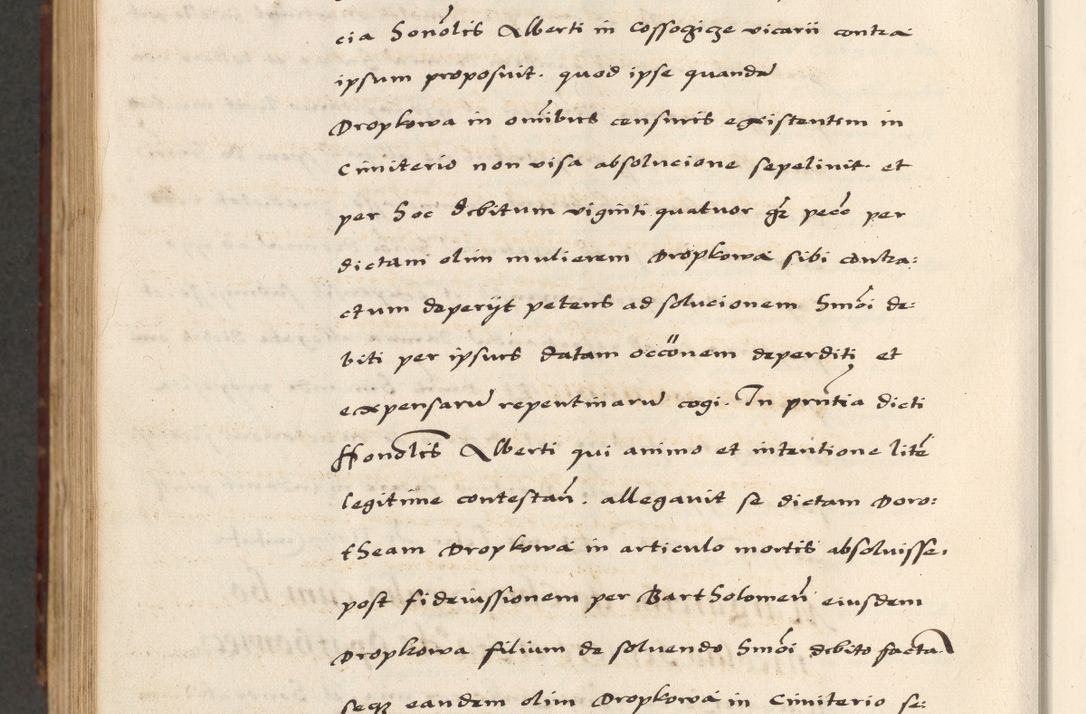 cia honolis Alberti in Cossogicze vicarii contra
ipsum proposuit. quod ipse quandā
Dropkowa in omībus censuris existentem in
Cimiterio non visa absolucione sepelivit. et
per hoc debitum viginti quatuor gr pecc per
dictam olim mulierem Dropkowa sibi contra:
ctum deperijt petens ad solucionem hmōi de:
biti per ipsius datam occōnem deperditi et
expensarū repentinarū cogi. In prntia dicti
Honolis Alberti qui animo et intentione litē
legitime contestan̄. allegavit se dictam Doro:
theam Dropkowa in articulo mortis absolvisse.
post fideiussionem per Bartholomeū eiusdem
Dropkowa filium de solvendo hmōi debito facta
seqz eandem olim Dropkowa in Cimiterio se: